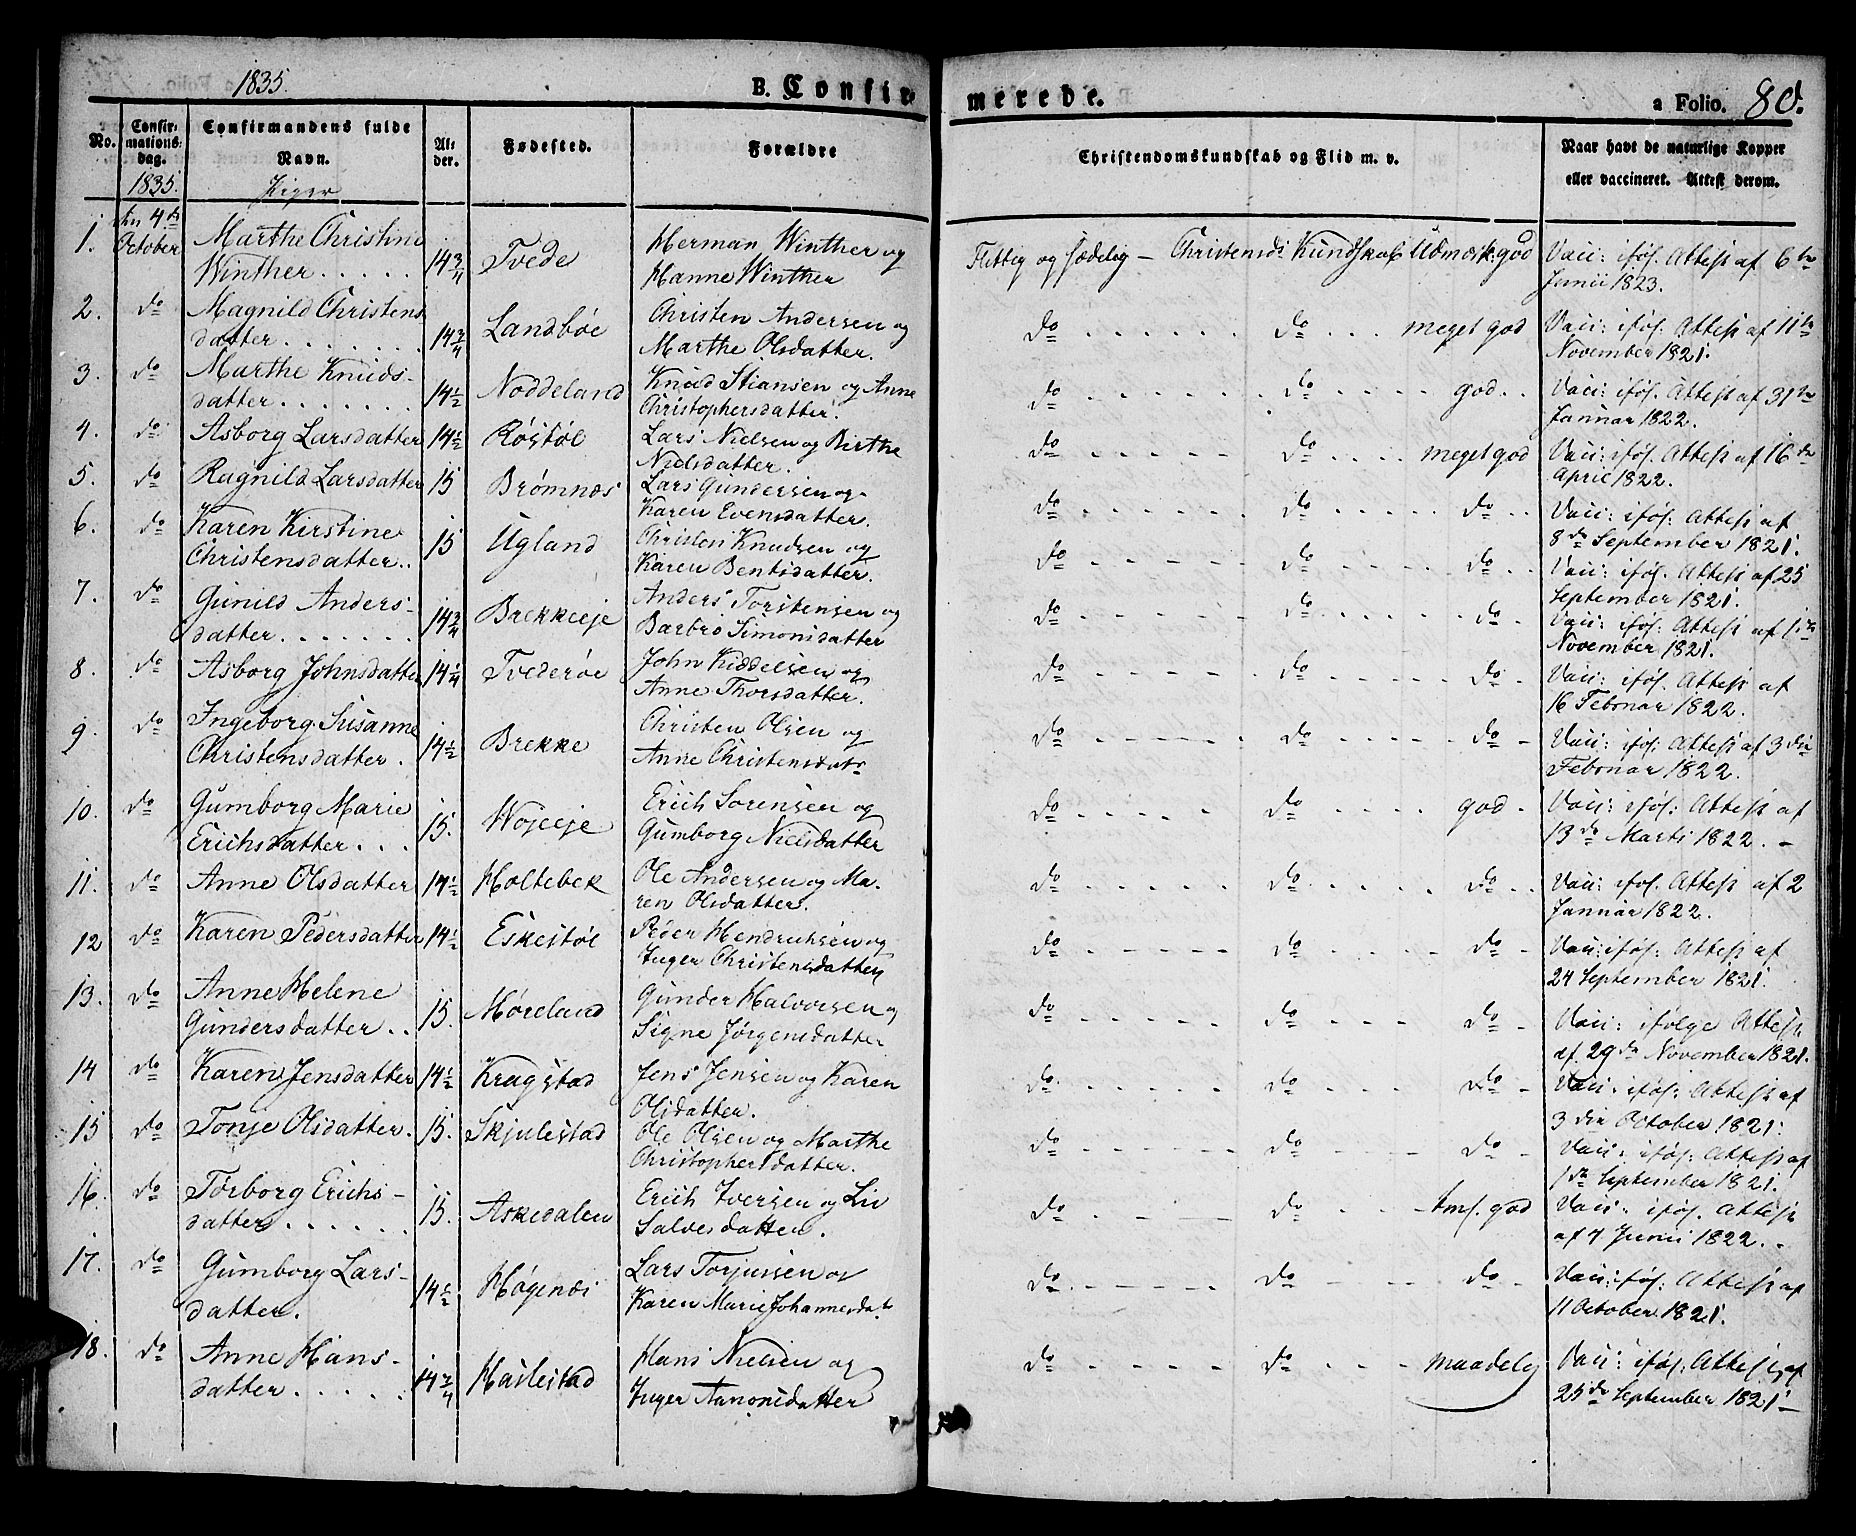 1835.
B. Confir-
merede.
a Folio. 80.
No.
Confir-
mations-
dag.
Confirmandens fulde
Navn.
Al-
der.
Fødested.
Forældre
Christendomskundskab og Flid m. v.
Naar havt de naturlige Kopper
eller vaccineret. Attest derom.
1835.
Piger
1. den 4de October Marthe Christine Winther 14 3/4 Tvede Herman Winther og Hanne Winther Flittig og sædelig – Christensds Kundskab Udmærk: god Vacc: iföl. Attest af 6te Junii 1823.
2. do Magnild Christensdatter 14 3/4 Landböe Christen Andersen og Marthe Olsdatter. do do meget god Vacc: iföl. Attest af 11te November 1821.
3. do Marthe Knudsdatter 14 1/2 Noddeland Knud Stiansen og Anne Christophersdatter. do do god Vacc: iföl. Attest af 31te Januar 1822.
4. do Asborg Larsdatter 14 1/2 Röstöl Lars Nielsen og Birthe Nielsdatter. do do meget god Vacc: iföl. Attest af 16de April 1822.
5. do Ragnild Larsdatter 15 Brömnes Lars Gundersen og Karen Evensdatter. do do do Vacc: iföl. Attest af 8de September 1821.
6. do Karen Kirstine Christensdatter 15 Ugland Christen Knudsen og Karen Bentsdatter. do do do Vacc: iföl. Attest af 25 September 1821.
7. do Gunild Andersdatter 14 3/4 Brekkeeje Anders Torstensen og Barbro Simonsdatter do do do Vacc: iföl: Attest af 1ste November 1821.
8. do Asborg Johnsdatter 14 1/4 Tvederöe John Kiddelsen og Anne Thorsdatter. do do do Vacc: iföl. Attest af 16 Februar 1822.
9. do Ingeborg Susanne Christensdatter. 14 1/2 Brekke Christen Olsen og Anne Christensdatr do do do Vacc: iföl: Attest af 3die Februar 1822.
10. do Gumborg Marie Erichsdatter 15. Wojeeje Erich Sorensen og Gumborg Nielsdatter do do god Vacc: iföl: Attest af 13de Marti 1822.
11. do Anne Olsdatter 14 1/2 Holtebek Ole Andersen og Maren Olsdatter. do do do Vacc: iföl. Attest af 2 Januar 1822.
12 do Karen Pedersdatter 14 1/2 Eskestöl Peder Hendrichsen og Inger Christensdatter do do do Vacc: iföl: Attest af 24 September 1821.
13. do Anne Helene Gundersdatter 15. Höreland Gunder Halvorsen og Signe Jörgensdatter do do do Vacc: ifölge Attest af 29de November 1821.
14 do Karen Jensdatter 14 1/2 Kragstad Jens Jensen og Karen Olsdatter. do do do Vacc: iföl. Attest af 3die October 1821.
15 do Tonje Olsdatter. 15. Skjulestad Ole Olsen og Marthe Christophersdatter. do do do Vacc: iföl: Attest af 1ste September 1821.
16. do Torborg Erichsdatter 15. Askedalen Erich Iversen og Liv Salvesdatter. do do tml. god Vacc: iföl. Attest af 7 Junii 1822.
17. do Gumborg Larsdatter. 14 1/2 Högenes Lars Torjussen og Karen Marie Johannesdat. do do do Vacc: iföl. Attest af 11 October 1821.
18. do Anne Hansdatter 14 3/4 Haslestad Hans Nielsen og Inger Aanonsdatter do do maadelig Vacc: iföl: Attest af 25de September 1821.